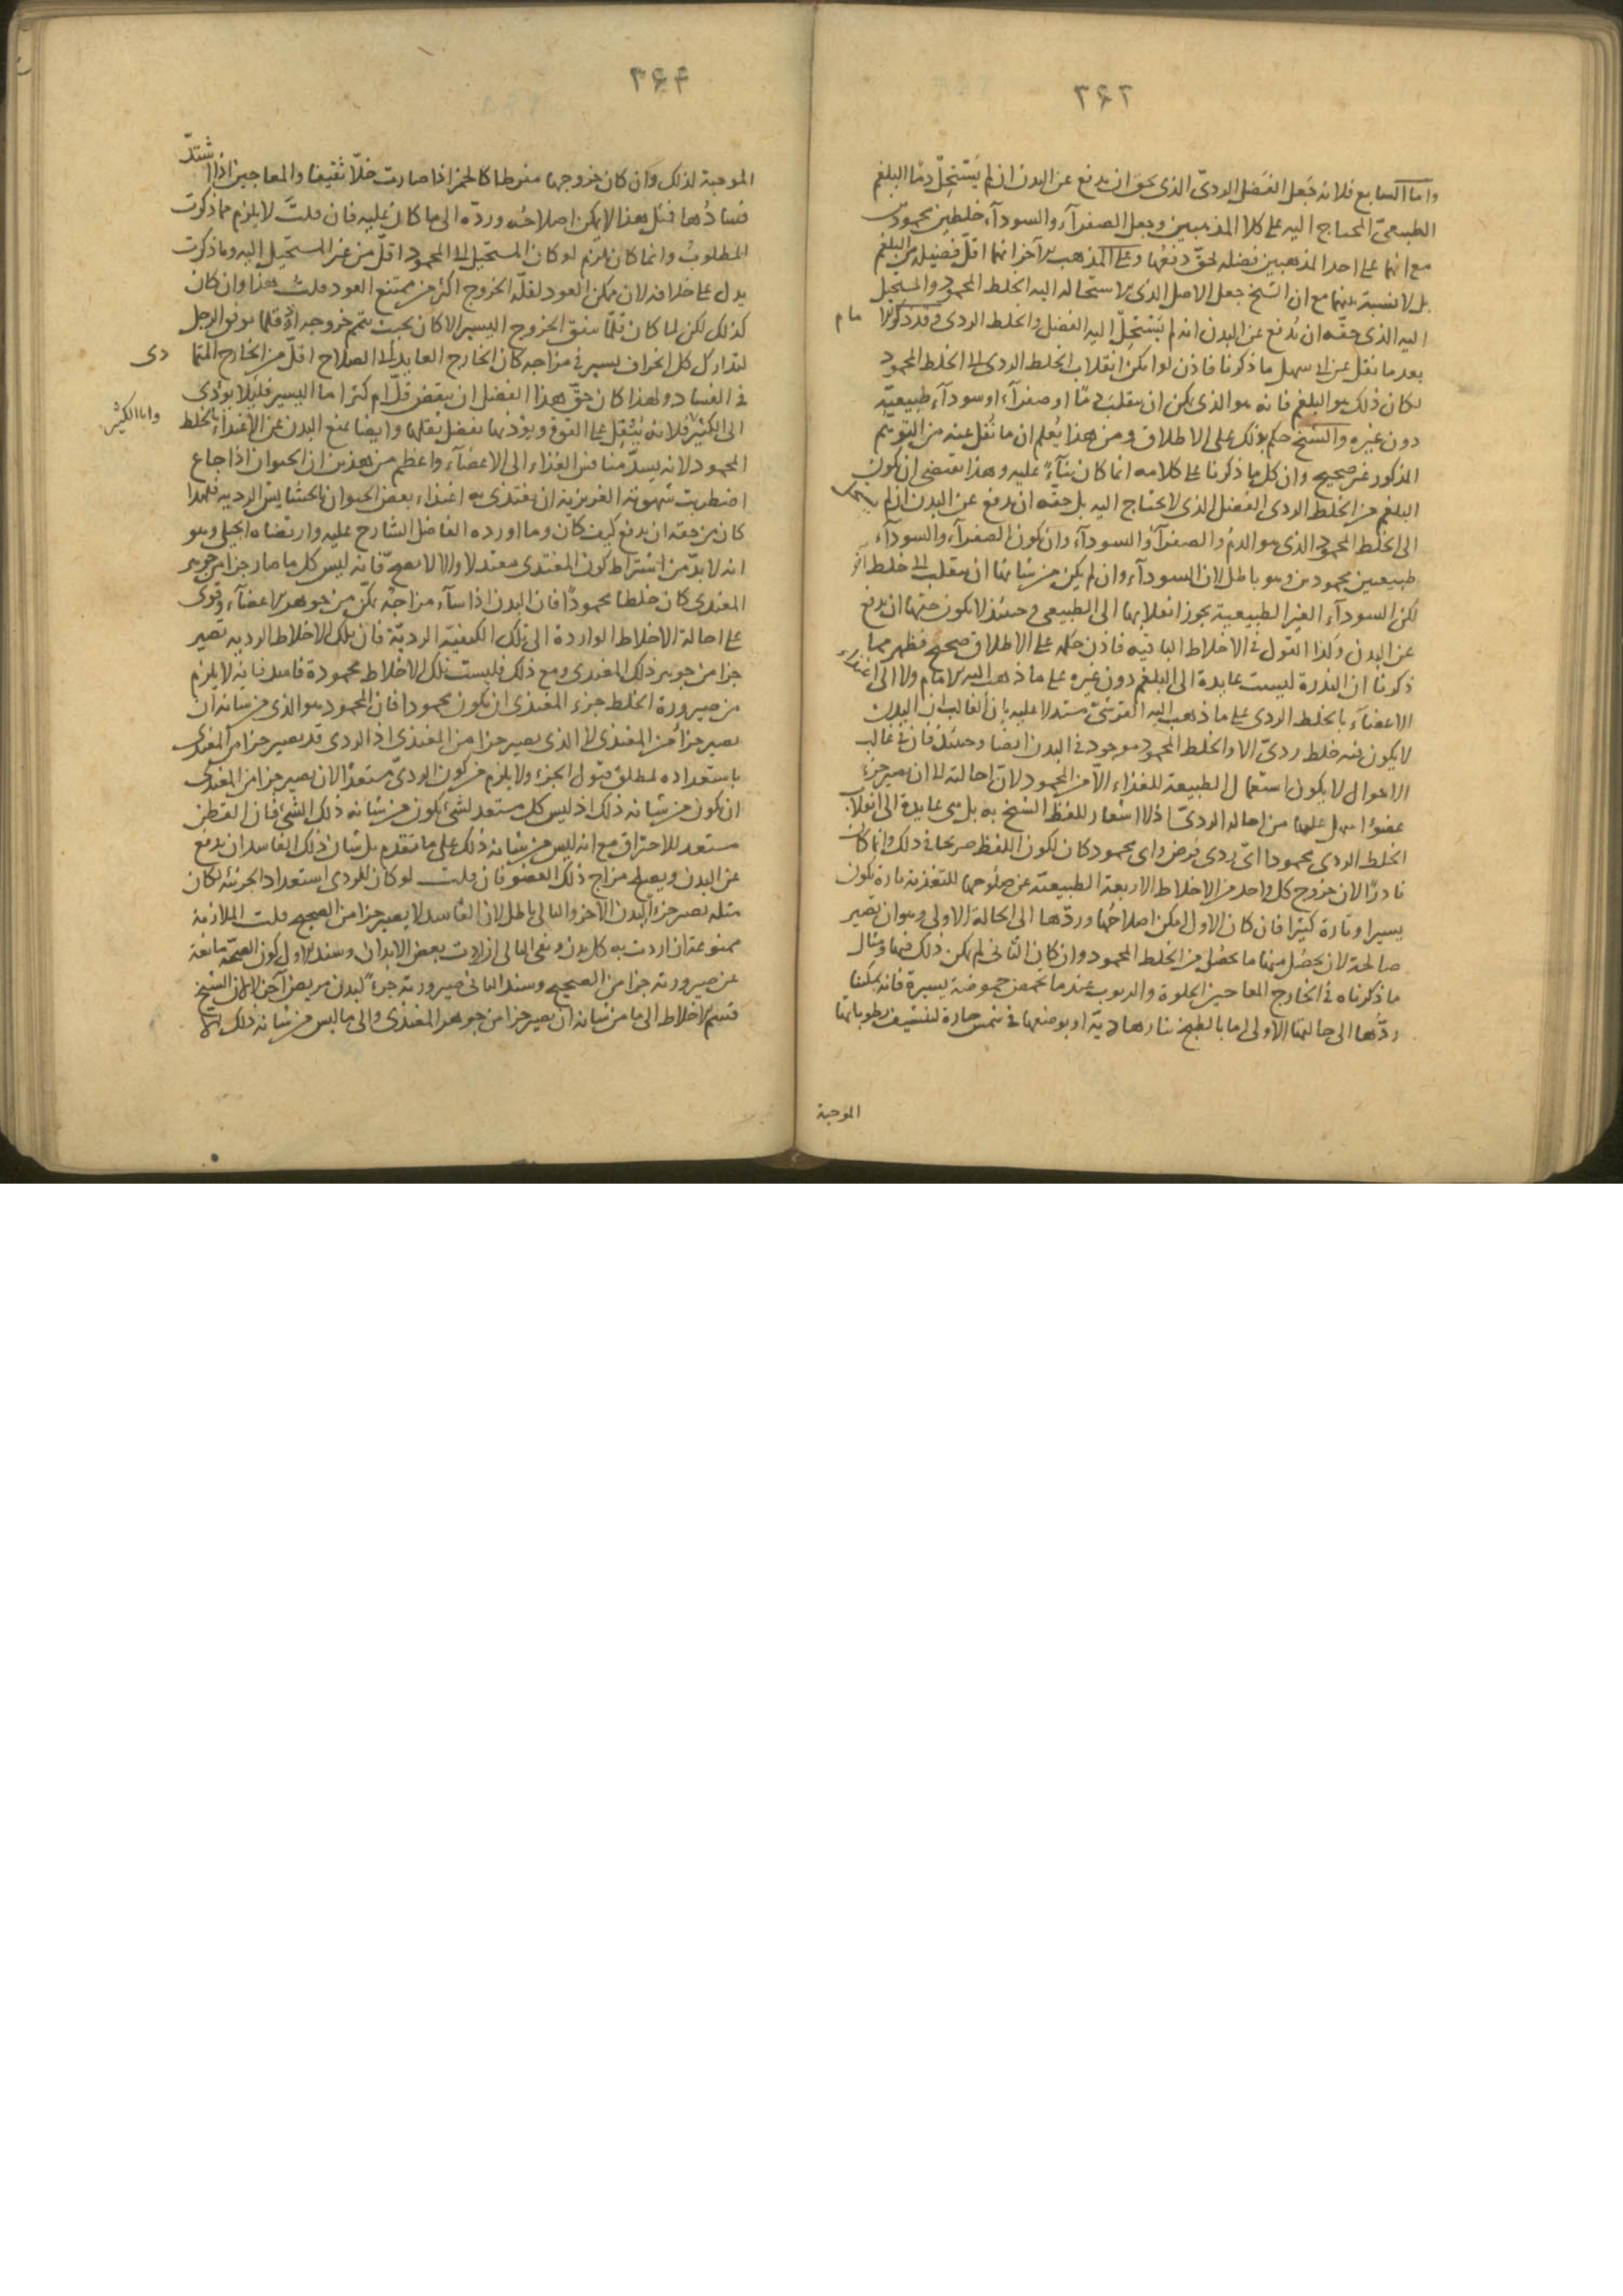 ٣۶٣
واما السابع فلانه جعل الفضل الردىّ الذى يحق ان يدفع عن البدن ان لم يستحل دمًا البلغم
الطبيعىّ المحتاج اليه على كلا المذهبين وجعل الصفرآء والسودآء خلطين محمودين
مع انهما على احد المذهبين فضله يحقّ دفعها وعلى المذهب الآخر انهما اقلّ فضيلة من البلغم
بل لا نسبة بينهما مع ان الشيخ جعل الاصل الذى الاستحاله اليه الخلط المحمود والمستحيل
اليه الذى حقّه ان يُدفع عن البدن انه لم يستحِلّ اليه الفضل والخلط الردى وقد ذكر الامام
بعد ما نقل عن المسهل ما ذكرنا فاذن لو امكن انقلاب الخلط الردى الى الخلط المحمود
لكان ذلك هو البلغم فانه هو الذى يمكن ان ينقلب دمًا او صفرآء او سودآء طبيعيّة
دون غيره والشيخ حكم بذلك على الاطلاق ومن هذا يُعلم ان ما نُقل عنه من التوهّم
المذكور غير صحيح وان كل ما ذكرنا على كلامه انما كان بنآءً عليه وهذا يقتضى ان يكون
البلغم من الخلط الردى الفضل الذى لا يحتاج اليه بل حقّه ان يدفع عن البدن ان لم يستحل
الى الخلط المحمود الذى هو الدم والصفرآء والسودآء وان يكون الصفرآء والسودآء
طبيعيين محمودين وهو باطل لان السودآء وان لم يكن من شانها ان ينقلب الى خلط آخر
لكن السودآء الغير الطبيعية يجوز انقلابها الى الطبيعى وحينئذ لا يكون حقها ان يدفع
عن البدن وكذا القول فى الاخلاط الباقيه فاذن حكمه على الاطلاق صحيح فظهر مما
ذكرنا ان الندرة ليست عايدة الى البلغم دون غيره على ما ذهب اليه الامام ولا الى اغتذاء
الاعضآء بالخلط الردى على ما ذهب اليه القرشىّ مستدلا عليه بان الغالب ان البدن
لا يكون فيه خلط ردىّ الا والخلط المحمود موجود فى البدن ايضا وحينئذ فان فى غالب
الاحوال لا يكون استعمال الطبيعة للغذاء الا من المحمود لان احالته الى ان يصير جزء
عضو اسهل عليها من احاله الردىّ اذ لا اشعار للفظ الشيخ به بل هى عايدة الى انقلاب
الخلط الردى محمودا اىّ ردى فرض واى محمود كان لكون اللفظ صريحا فى ذلك وانما كان
نادرًا لان خروج كل واحد من الاخلاط الاربعة الطبيعيّة عن صلوحها للتغذية تارة يكون
يسيرا وتارة كثيرا فان كان الاول امكن اصلاحُها وردّها الى الحالة الاولى وهو ان تصير
صالحة لان يحصُل منها ما يحصُل من الخلط المحمود وان كان الثانى لم يمكن ذلك فيها ومثال
ما ذكرناه فى الخارج المعاجين الحلوة والربوب عند ما يحمض حموضة يسيرة فانه يمكننا
ردّها الى حالتها الاولى اما بالطبخ بنار هادية او بوضعها فى شمس حارة لتنشيف رطوباتها
الموجبة
٣۶۴
الموجبة لذلك وان كان خروجها مفرطا كالخمر اذا صارت خلّا ثقيفا والمعاجين اذا اشتدّ
فسادُها فمثل هذا لا يمكن اصلاحُه وردّه الى ما كان عليه فان قلتَ لا يلزم مما ذكرت
المطلوبُ وانما كان يلزم لو كان المستحيل الى المحمود اقلّ من غير المستحيل اليه وما ذكرت
يدل على خلافه لان ممكن العود لقلّة الخروج اكثر من ممتنع العود قلتُ هذا وان كان
كذلك لكن لما كان قلّما يتفق الخروج اليسير الا كان بحيث يتم خروجه اذ قلّما يوفق الرجل
لتدارك كل انحراف يسير فى مزاجه كان الخارج العايد الى الصلاح اقلّ من الخارج المتمادى
فى الفساد ولهذا كان حقّ هذا الفضل ان ينفض قلّ ام كثر اما اليسير فلئلا يؤدى
الى الكثير واما الكثير فلانه يُثقِل على القوة ويؤذيها بفضل ثقلها وايضا يمنع البدن عن الاغتذاء بالخلط
المحمود لانه يسدّ منافس الغذاء الى الاعضآء واعظم من هذين ان الحيوان اذا جاع
اضطربت شهوته الغريزية ان يغتذى به اغتذاء بعض الحيوان بالحشايش الرديه فلهذا
كان من حقه ان يدفع كيف كان وما اورده الفاضل الشارح عليه وارتضاه الجيلى وهو
انه لا بدّ من اشتراط كون المغتدى معتدلا والا لا يصح فانه ليس كل ما صار جزا من جوهر
المغتدى كان خلطا محمودًا فان البدن اذا سآء مزاجه تمكّن من جوهر الاعضآء وقوى
على احالة الاخلاط الواردة الى تلك الكيفيّة الرديّة فان تلك الاخلاط الرديه تصير
جزا من جوهر ذلك المغتدى ومع ذلك فليست تلك الاخلاط محمودة فاسد فانه لا يلزم
من صيرورة الخلط جزء المغتذى ان يكون محمودا فان المحمود هو الذى من شانه ان
يصير جزاً من المغتذى لا الذى يصير جزا من المغتذى اذ الردى قد يصير جزا من المغتدى
باستعداده لمطلق قبول الجزء ولا يلزم من كون الردىّ مستعدًا لان يصير جزا من المغتدى
ان يكون من شانه ذلك اذ ليس كل مستعد لشئ يكون من شانه ذلك الشئ فان القطن
مستعد للاحتراق مع انه ليس من شانه ذلك على ما تقدم بل شان ذلك الفاسد ان يدفع
عن البدن ويصلح مزاج ذلك العضو فان قلت لو كان للردى استعداد الجزئية لكان
مثله يصير جزءا لبدن الآخر والتالى باطل لان الفاسد لا يصير جزا من الصحيح قلت الملازمة
ممنوعة ان اردت به كل بدن ونفى التالى ان اردت بعض الابدان وسند الاول كون الصحّة مانعة
عن صيرورته جزا من الصحيح وسند الثانى صيرورته جزءً لبدن مريض آخر لان الشيخ
قسم الاخلاط الى ما من شانه ان يصير جزا من جوهر المغتذى والى ما ليس من شانه ذلك